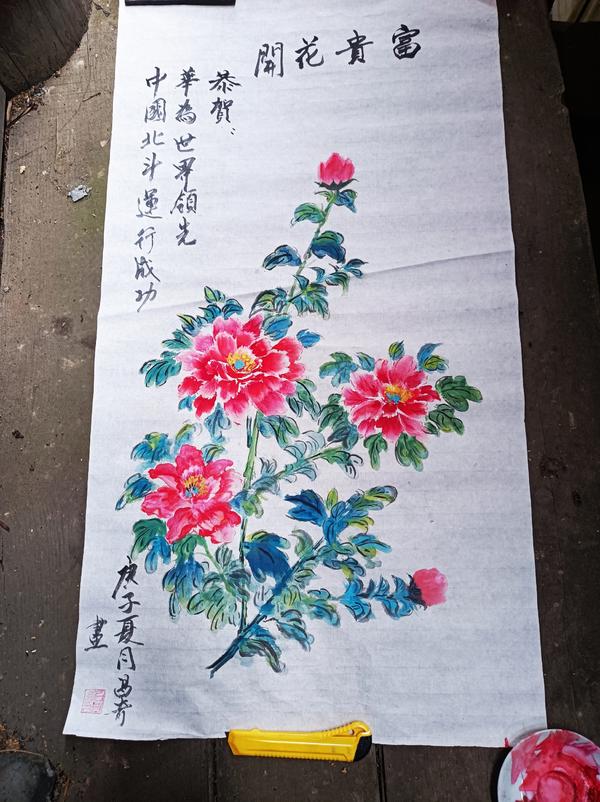 富貴花開
恭賀：
華為世界領先
中國北斗運行成功
庚子夏月昌奇
畫